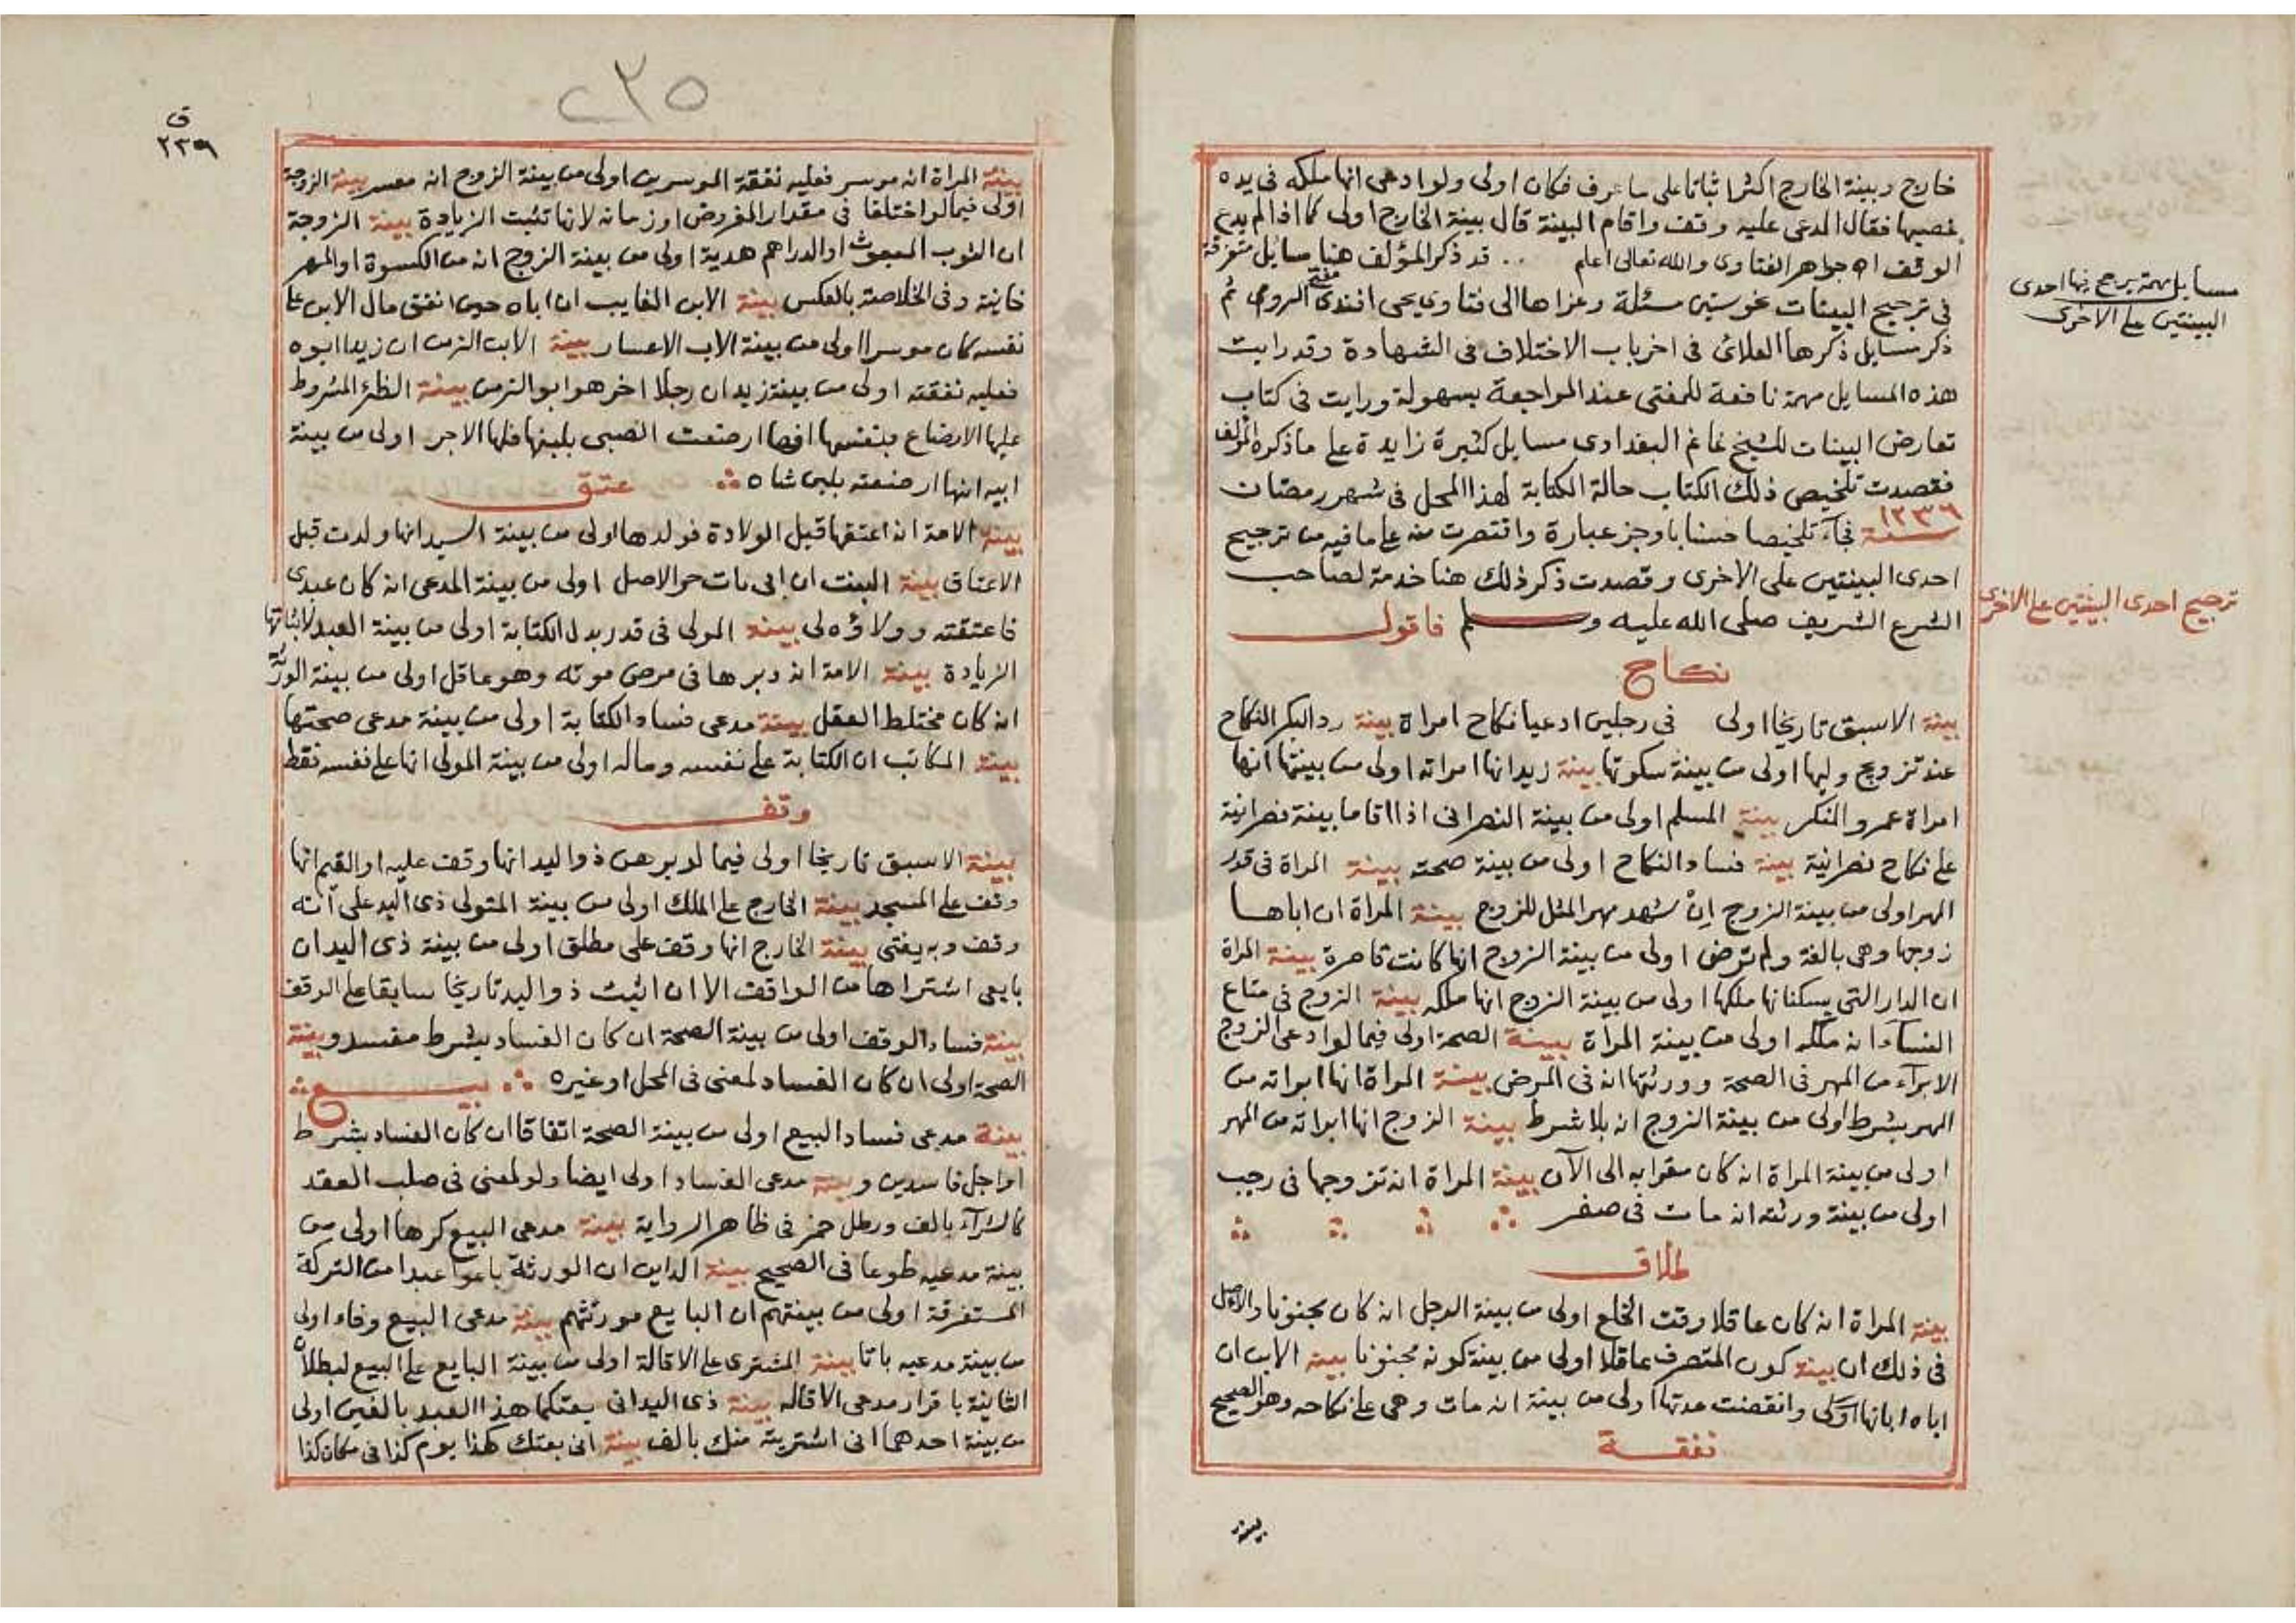 خارج وبينة الخارج اكثر اثباتا على ما عرف فكان اولى ولو ادعى انها ملكه فى يده
غصبها فقال المدعى عليه وقف واقام البينة قال بينة الخارج اولى كما اذا لم يدع
الوقف اه جواهر الفتاوى والله تعالى اعلم .. قد ذكر المؤلف هنا مسايل متفرقة
فى ترجيح البينات نحو ستين مسئلة وعزاها الى فتاوى يحيى افندى مفتى الروم ثم
ذكر مسايل ذكرها العلائى فى اخر باب الاختلاف فى الشهادة وقد رايت
هذه المسايل مهمة نافعة للمفتى عند المراجعة بسهولة ورايت فى كتاب
تعارض البينات للشيخ غانم البغدادى مسايل كثيرة زايدة على ما ذكره المؤلف
فقصدت تلخيص ذلك الكتاب حالة الكتابة لهذا المحل فى شهر رمضان
سنة ١٢٣٦ فجآء تلخيصا حسنا باوجز عبارة واقتصرت منه على ما فيه من ترجيح
احدى البينتين على الاخرى وقصدت ذكر ذلك هنا خدمة لصاحب
الشرع الشريف صلى الله عليه وسلم فاقول
نكاح
بينة الاسبق تاريخا اولى فى رجلين ادعيا نكاح امراة بينة رد البكر النكاح
عند تزويج وليها اولى من بينة سكوتها بينة زيد انها امراته اولى من بينتها انها
امراة عمرو المنكر بينة المسلم اولى من بينة النصرانى اذا اقاما بينة نصرانية
على نكاح نصرانية بينة فساد النكاح اولى من بينة صحته بينة المراة فى قدر
المهر اولى من بينة الزوج اِنْ شهد مهر المثل للزوج بينة المراة ان اباها
زوجها وهى بالغة ولم ترض اولى من بينة الزوج انها كانت قاصرة بينة المراة
ان الدار التى يسكنانها ملكها اولى من بينة الزوج انها ملكه بينة الزوج فى متاع
النسآء انه ملكه اولى من بينة المراة بينة الصحة اولى فيما لو ادعى الزوج
الابرآء من المهر فى الصحة وورثتها انه فى المرض بينة المراة انها ابراته من
المهر بشرط اولى من بينة الزوج انه بلا شرط بينة الزوج انها ابراته من المهر
اولى من بينة المراة انه كان مقرا به الى الآن بينة المراة انه تزوجها فى رجب
اولى من بينة ورثته انه مات فى صفر
طلاق
بينة المراة انه كان عاقلا وقت الخلع اولى من بينة الرجل انه كان مجنونا والاصل
فى ذلك ان بينة كون المتصرف عاقلا اولى من بينة كونه مجنونا بينة الابن ان
اباه ابانها وانقضت عدتها اولى من بينة انه مات وهى على نكاحه وهو الصحيح
نفقة
بينة
مسايل مهمة يرجح فيها احدى
البينتين على الاخرى
ترجيح احدى البينتين على الاخرى
٢٣٥
ق
٢٣٩
بينة المراة انه موسر فعليه نفقة الموسرين اولى من بينة الزوج انه معسر بينة الزوجة
اولى فيما لو اختلفا فى مقدار المفروض او زمانه لانها تثبت الزيادة بينة الزوجة
ان الثوب المبعوث او الدراهم هدية اولى من بينة الزوج انه من الكسوة او المهر
خانية وفى الخلاصة بالعكس بينة الابن الغايب ان اباه حين انفق مال الابن على
نفسه كان موسرا اولى من بينة الاب الاعسار بينة الاب الزمن ان زيدا ابوه
فعليه نفقته اولى من بينة زيد ان رجلا اخر هو ابو الزمن بينة الظئر المشروط
عليها الارضاع بنفسها انها ارضعت الصبى بلبنها فلها الاجر اولى من بينة
ابيه انها ارضعته بلبن شاه عتق
بينة الامة انه اعتقها قبل الولادة فولدها اولى من بينة السيد انها ولدت قبل
الاعتاق بينة البنت ان ابى مات حر الاصل اولى من بينة المدعى انه كان عبدى
فاعتقته وولاؤه لى بينة المولى فى قدر بدل الكتابة اولى من بينة العبد لاثباتها
الزيادة بينة الامة انه دبرها فى مرض موته وهو عاقل اولى من بينة الورثة
انه كان مختلط العقل بينة مدعى فساد الكتابة اولى من بينة مدعى صحتها
بينة المكاتب ان الكتابة على نفسه وماله اولى من بينة المولى انها على نفسه فقط
وقف
بينة الاسبق تاريخا اولى فيما لو برهن ذو اليد انها وقف عليه او القيم انها
وقف على المسجد بينة الخارج على الملك اولى من بينة المتولى ذى اليد على انه
وقف وبه يفتى بينة الخارج انها وقف على مطلق اولى من بينة ذى اليد ان
بايعى اشتراها من الواقف الا ان اثبت ذو اليد تاريخا سابقا على الوقف
بينة فساد الوقف اولى من بينة الصحة ان كان الفساد بشرط مفسد وبينة
الصحة اولى ان كان الفساد لمعنى فى المحل او غيره بيع
بينة مدعى فساد البيع اولى من بينة الصحة اتفاقا ان كان الفساد بشرط
او اجل فاسدين وبينة مدعى الفساد اولى ايضا ولو لمعنى فى صلب العقد
كالشرآء بالف ورطل خمر فى ظاهر الرواية بينة مدعى البيع كرها اولى من
بينة مدعيه طوعا فى الصحيح بينة الداين ان الورثة باعوا عبدا من التركة
المستغرقة اولى من بينتهم ان البايع مورثهم بينة مدعى البيع وفاء اولى
من بينة مدعيه باتا بينة المشترى على الاقالة اولى من بينة البايع على البيع لبطلان
الثانية باقرار مدعى الاقاله بينة ذى اليد انى بعتكما هذا العبد بالفين اولى
من بينة احدهما انى اشتريته منك بالف بينة انى بعتك كهذا يوم كذا فى مكان كذا